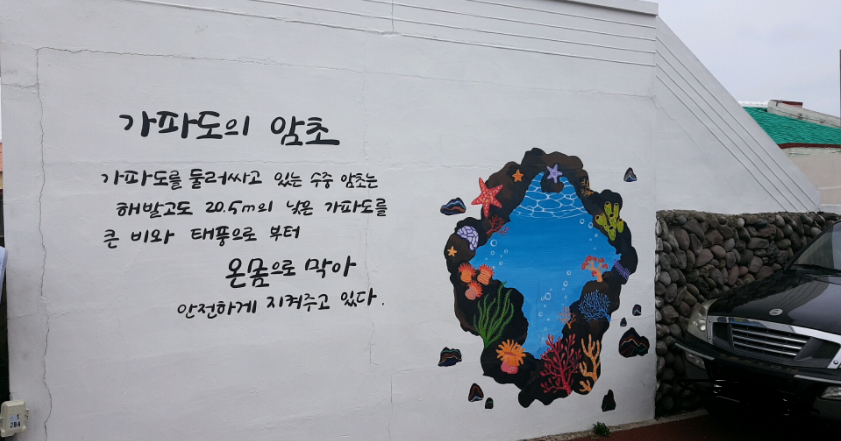 가파도의 암초
가파도를 둘러싸고 있는 수중 암초는
해발고도 20.5m의 낮은 가파도를
큰 비와 태풍으로 부터
온몸으로 막아
안전하게 지켜주고 있다.